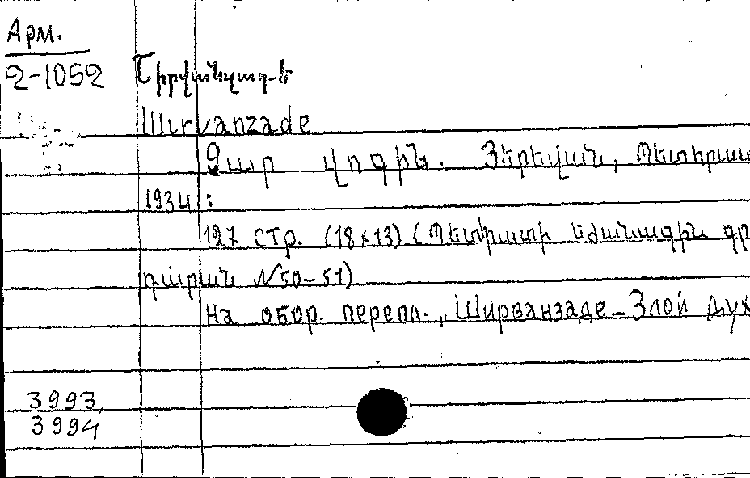 Арм.
2-1052
Շիրվանզադե
Širvanzade
Չար վոգին. Յերեվան, Պետհրատ
1934:
127 стр. (18x13) (Պետհրատի եժանագին գր
դարան №50-51)
На обор. перепл. „Ширванзаде - Злой дух
3993,
3994